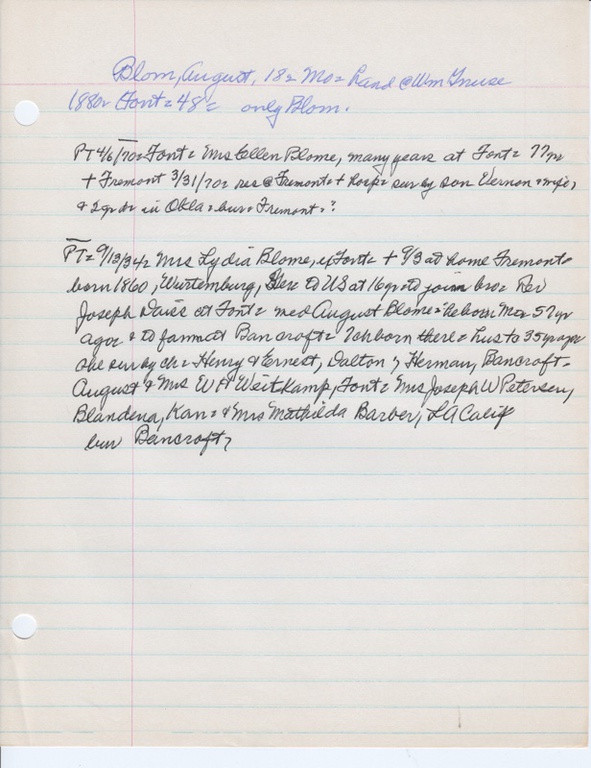 Blom, August, 18= Mo= hand @ Wm Gruse
1880= Font= 48= only Blom.
PT 4/6/70= Font= Mrs Ellen Blome, many years at Font= 77yr
+ Fremont 3/31/70= res @ Fremont= + hosp= sur by son Vernon & wife,
& 2 gr ch in Okla= bur= Fremont=?
PT= 9/13/34= Mrs Lydia Blome, Font= + 9/3 at home Fremont=
born 1860, Wurtemburg, Ger= to US at 16yr to join bro= Rev
Joseph at Font= med August Blome= he born Mo= 57yr
ago= & to farm at Bancroft= 7 ch born there= hus + 35yr ago=
she sur by ch= Henry & Ernest, Dalton, Herman, Bancroft=
August & Mrs W H Weitkamp, Font= Mrs Joseph W Petersen,
Blandena, Kan= & Mrs Mathilda Barber, LA Calif
bur Bancroft,